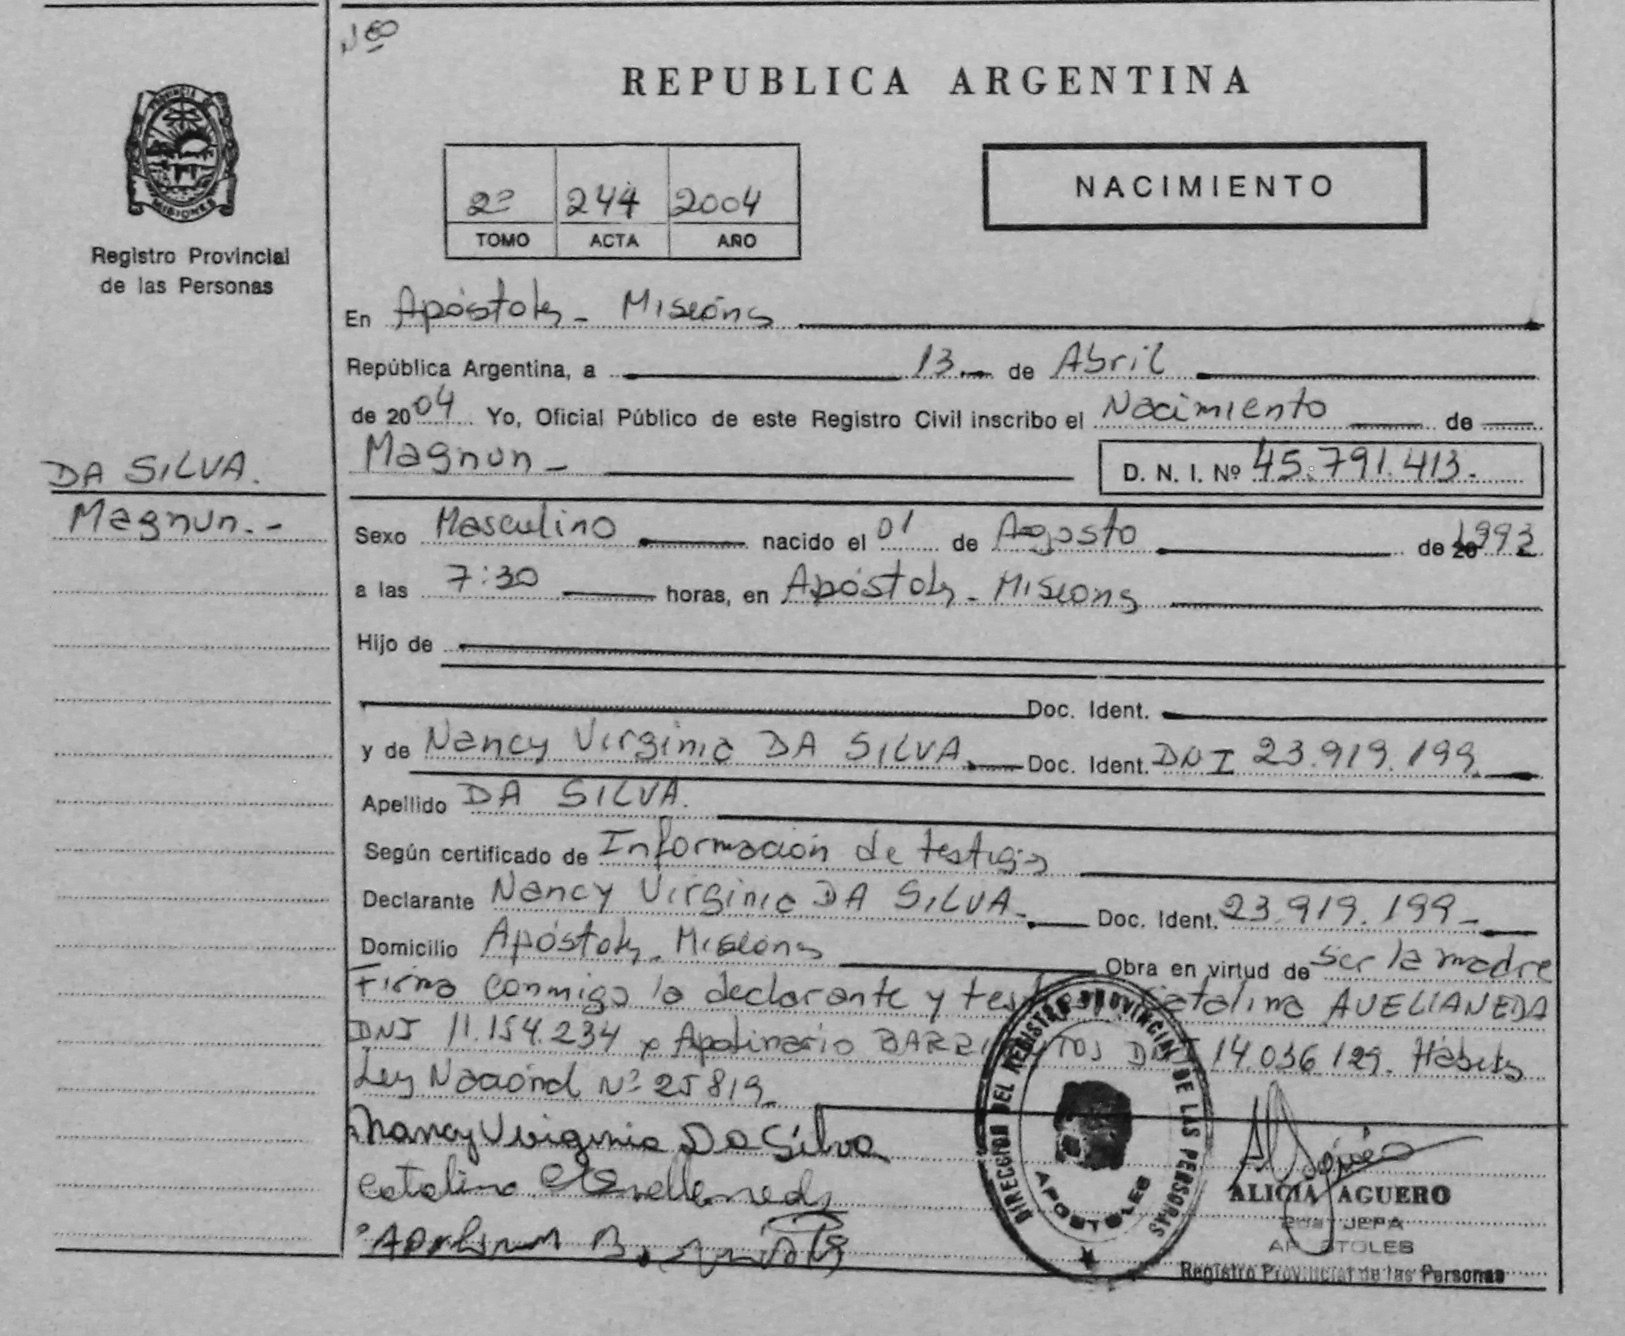 Nº 60
REPUBLICA ARGENTINA
PROVINCIA DE
MISIONES
Registro Provincial
de las Personas
2º 244 2004
TOMO ACTA AÑO
NACIMIENTO
En Apóstoles - Misiones
República Argentina, a 13 de Abril
de 2004 Yo, Oficial Público de este Registro Civil inscribo el Nacimiento de
DA SILVA.
Magnun.-
Magnun - D. N. I. Nº 45.791.413.
Sexo Masculino nacido el 01 de Agosto de 1993
a las 7:30 horas, en Apóstoles - Misiones
Hijo de
Doc. Ident.
y de Nancy Virginia DA SILVA. Doc. Ident. DNI 23.919.199.
Apellido DA SILVA.
Según certificado de Información de testigos
Declarante Nancy Virginia DA SILVA. Doc. Ident. 23.919.199-
Domicilio Apóstoles - Misiones Obra en virtud de ser la madre
Firma conmigo la declarante y Catalina AVELLANEDA
DNI 11.154.234 y Apolinario DNI 14.036.129. Hábiles
Ley Nacional Nº 25819.
Nancy Virginia Da Silva
Catalina Avellaneda
DIRECCION DEL REGISTRO PROVINCIAL DE LAS PERSONAS
APOSTOLES
ALICIA AGUERO
APOSTOLES
Registro Provincial de las Personas